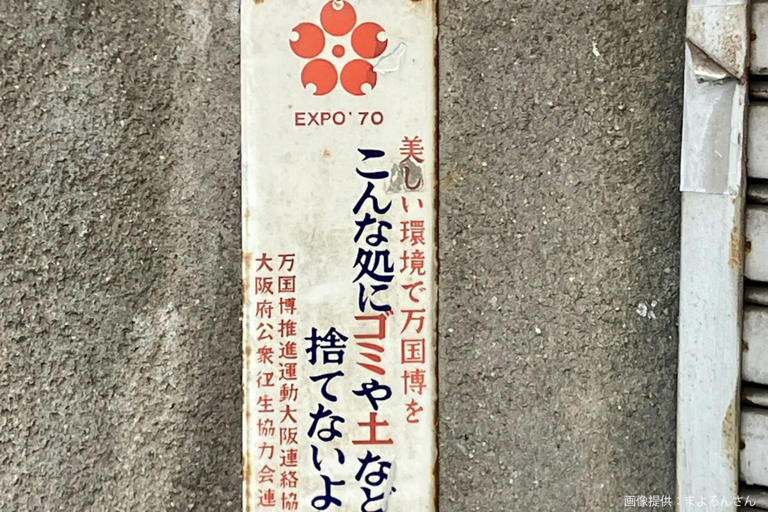 EXPO'70
美しい環境で万国博を
こんな処にゴミや土など
捨てないよ
万国博推進運動大阪連絡協
大阪府公衆衛生協力会連
画像提供：まよるんさん